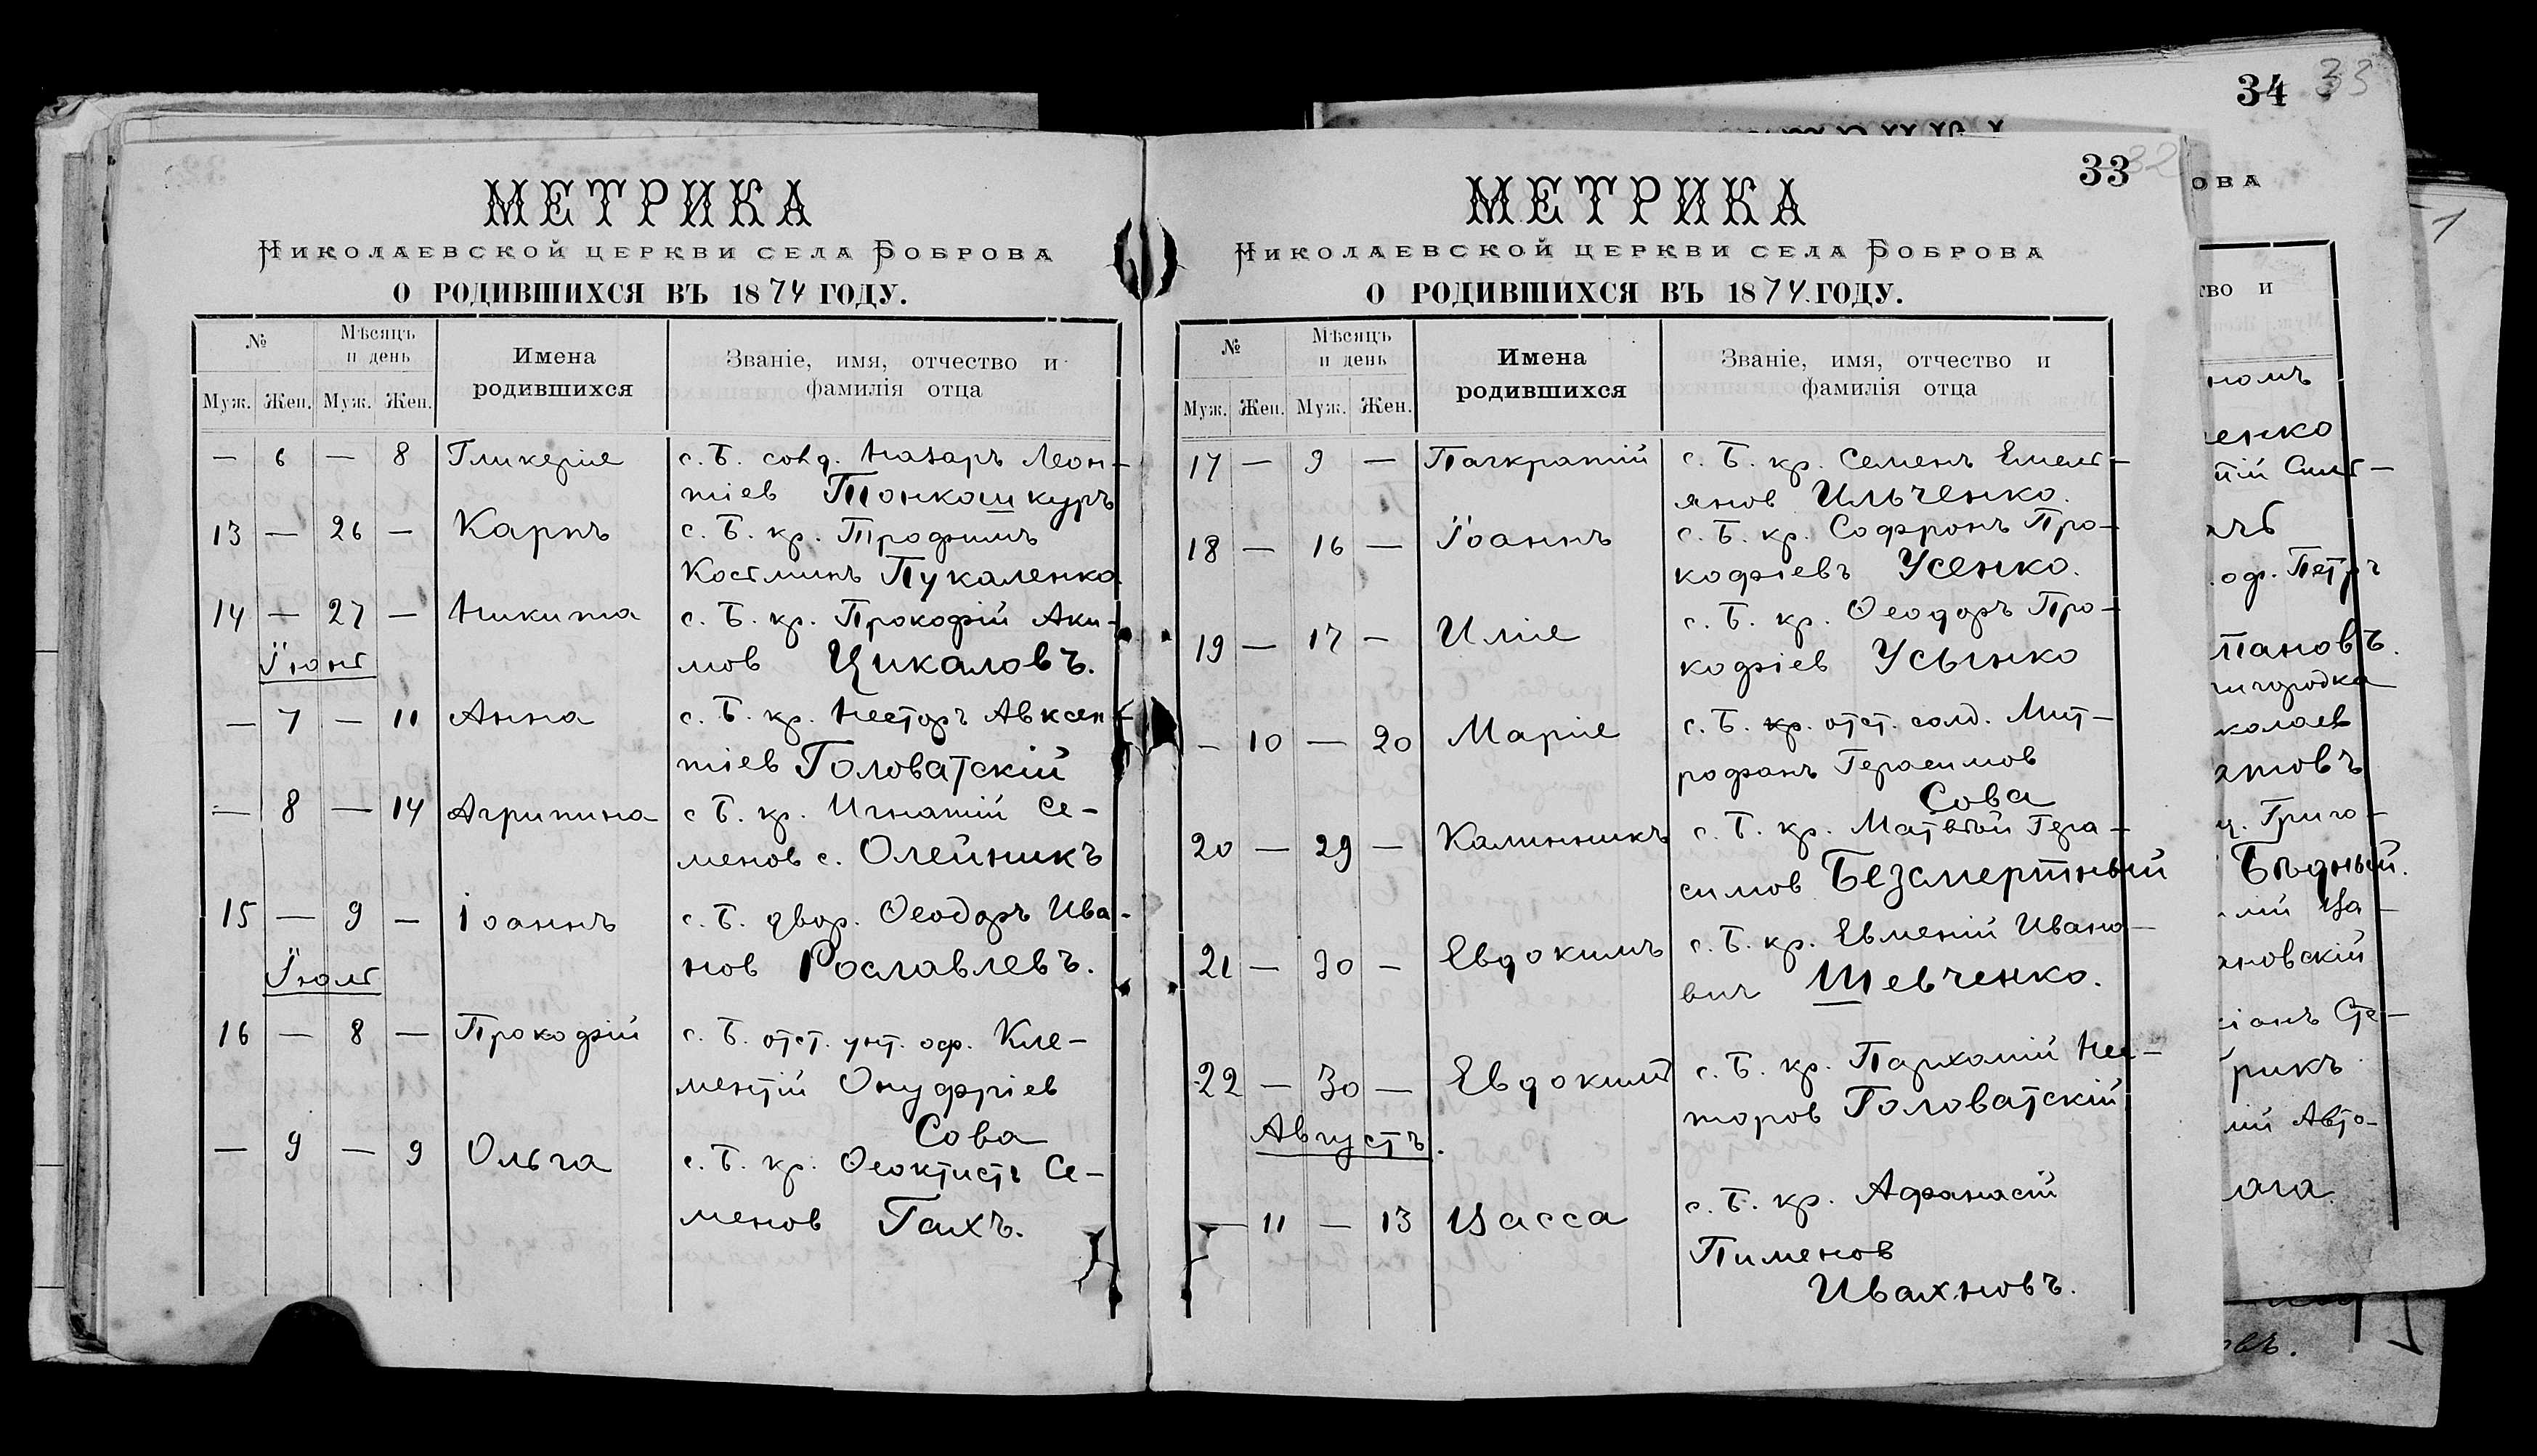 МЕТРИКА
Николаевской церкви села Боброва
О РОДИВШИХСЯ ВЪ 1874 ГОДУ.
№ Мѣсяцъ и день Имена родившихся Званіе, имя, отчество и фамилія отца
Муж. Жен. Муж. Жен.
— 6 — 8 Гликерія с. Б. солд. Назаръ Леон-
тіев Тонкошкуръ
13 — 26 — Карпъ с. Б. кр. Трофимъ
Косьминъ Пукаленко
14 — 27 — Никита с. Б. кр. Прокофій Аки-
Іюнь мов Цикаловъ.
— 7 — 11 Анна с. Б. кр. Несторъ Авксен-
тіев Головатскій
— 8 — 14 Агрипина с. Б. кр. Игнатій Се-
менов с. Олейникъ
15 — 9 — Іоаннъ с. Б. двор. Ѳеодоръ Ива-
нов Рославлевъ.
Іюль
16 — 8 — Прокофій с. Б. отст. унт. оф. Кле-
ментій Онуфріев
Сова
— 9 — 9 Ольга с. Б. кр. Ѳеоктистъ Се-
менов Гахъ.
33 32
МЕТРИКА
Николаевской церкви села Боброва
О РОДИВШИХСЯ ВЪ 1874. ГОДУ.
№ Мѣсяцъ и день Имена родившихся Званіе, имя, отчество и фамилія отца
Муж. Жен. Муж. Жен.
17 — 9 — Панкратій с. Б. кр. Семенъ Емель-
янов Ильченко.
18 — 16 — Іоаннъ с. Б. кр. Софронъ Про-
кофіевъ Усенко.
19 — 17 — Илія с. Б. кр. Ѳеодоръ Про-
кофіев Усынко
— 10 — 20 Марія с. Б. кр. отст. солд. Мит-
рофанъ Герасимов
Сова
20 — 29 — Калинникъ с. Б. кр. Матвѣй Гера-
симов Безсмертный
21 — 30 — Евдокимъ с. Б. кр. Евменій Ивано-
вич Шевченко.
22 — 30 — Евдокимъ с. Б. кр. Пархомій Нес-
торов Головатскій
Августъ.
— 11 — 13 Васса с. Б. кр. Афанасій
Пименов
Ивахновъ.
34 33
ОВА
тво и
номъ
енко
оф. Петръ
пановъ.
колаев
Григо-
Бѣдный.
ановскій
Сте-
рикъ
Авто-
1
овъ.